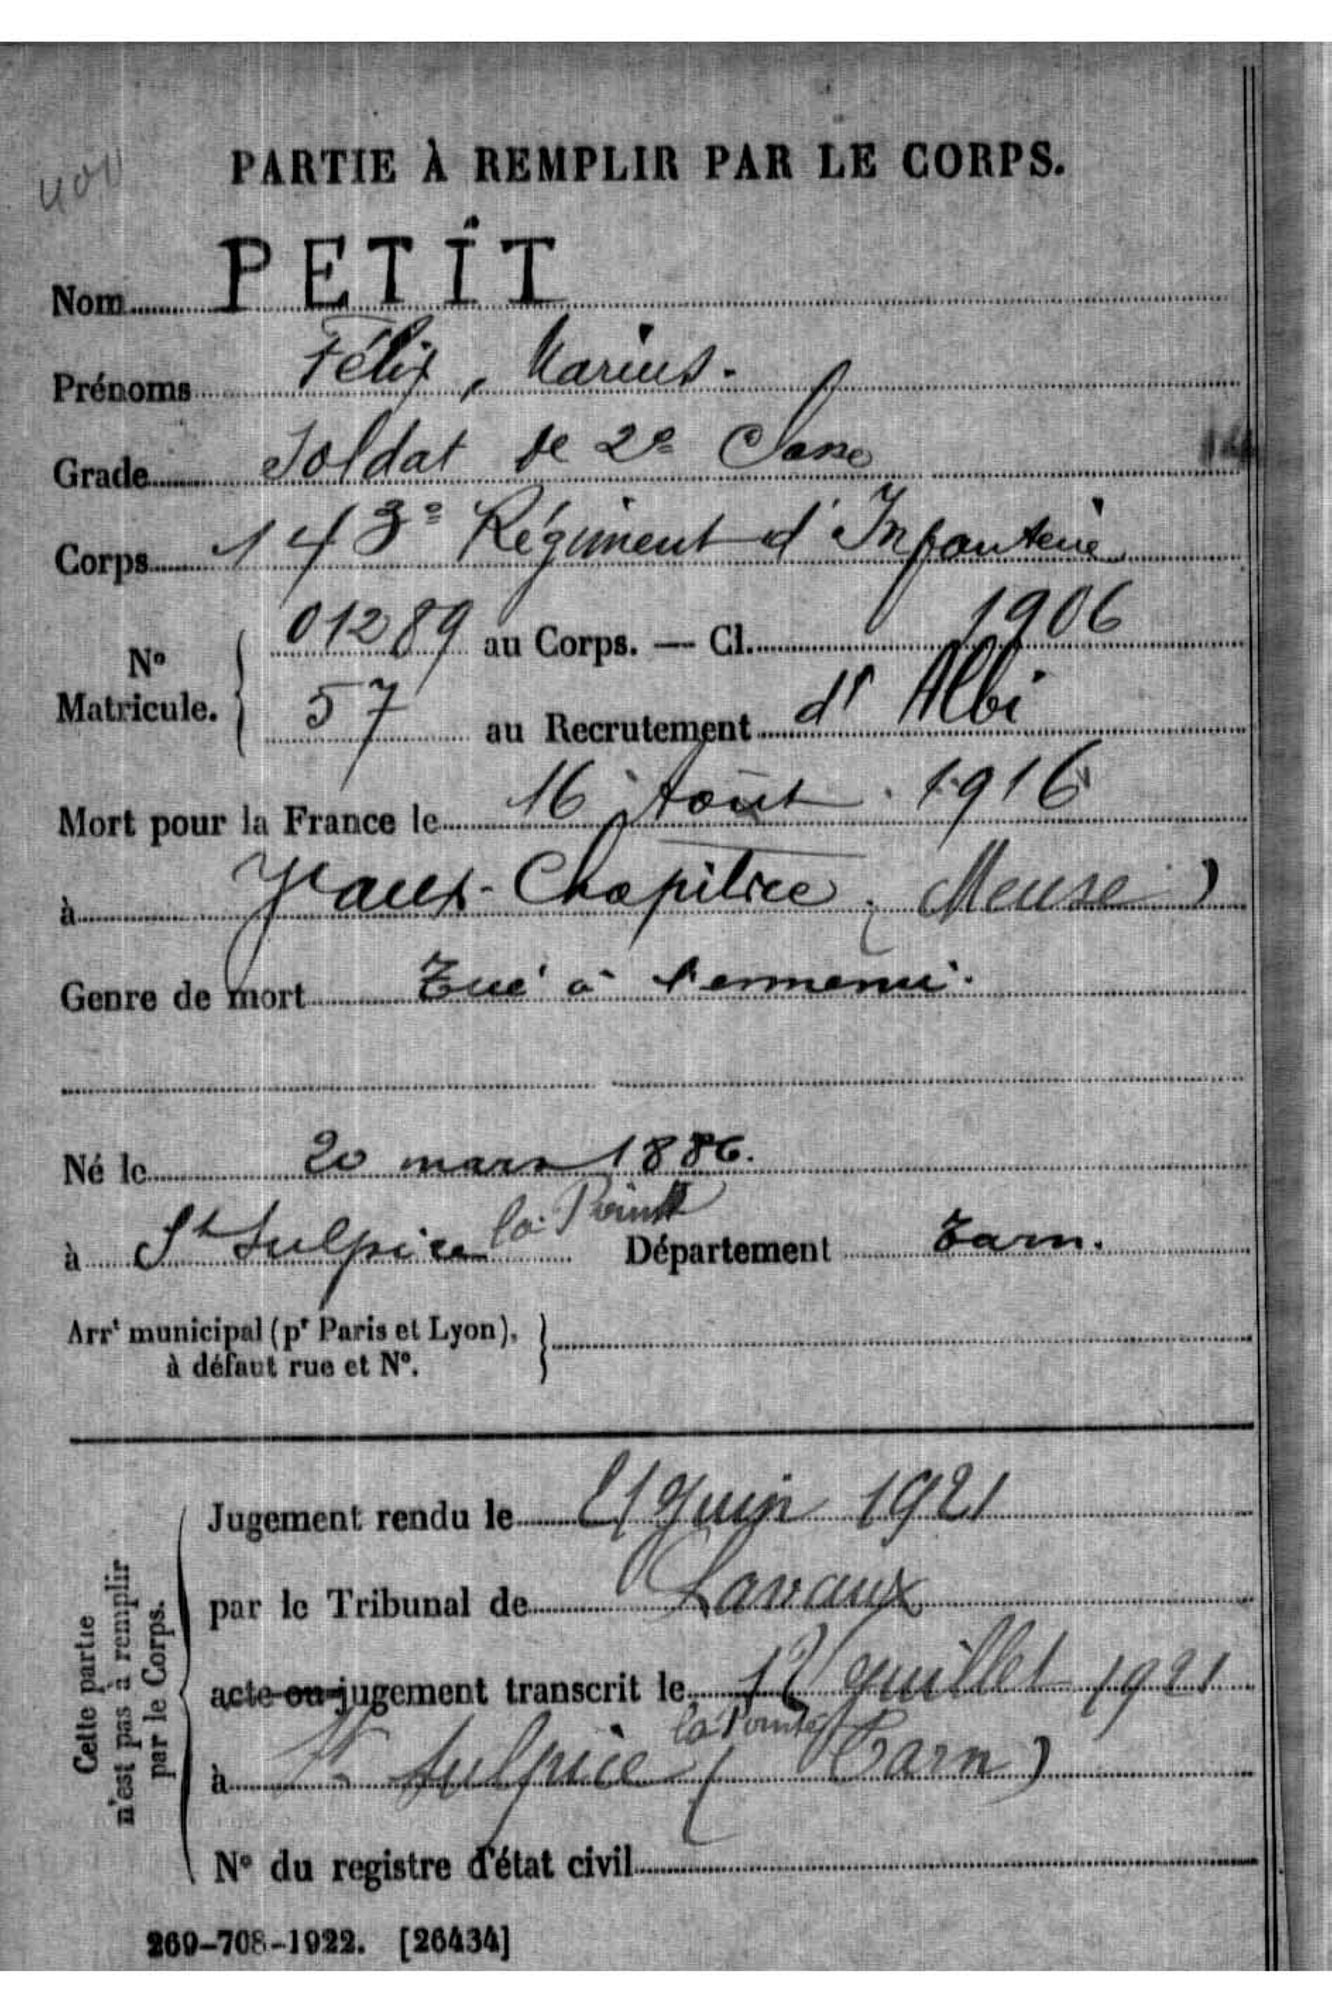 PARTIE À REMPLIR PAR LE CORPS.
Nom PETIT
Prénoms Félix, Marius.
Grade Soldat de 2e Classe
Corps 143e Régiment d'Infanterie
N° Matricule. 01289 au Corps. — Cl. 1906
57 au Recrutement d' Albi
Mort pour la France le 16 Août 1916
à Vaux-Chapitre (Meuse)
Genre de mort Tué à l'ennemi.
Né le 20 mars 1886.
à St Sulpice la Pointe Département Tarn.
Arrt municipal (pr Paris et Lyon),
à défaut rue et N°.
Cette partie
n'est pas à remplir
par le Corps.
Jugement rendu le 21 Juin 1921
par le Tribunal de Lavaux
acte ou jugement transcrit le Juillet 1921
à St Sulpice la Pointe (Tarn)
N° du registre d'état civil
269-708-1922. [26434]